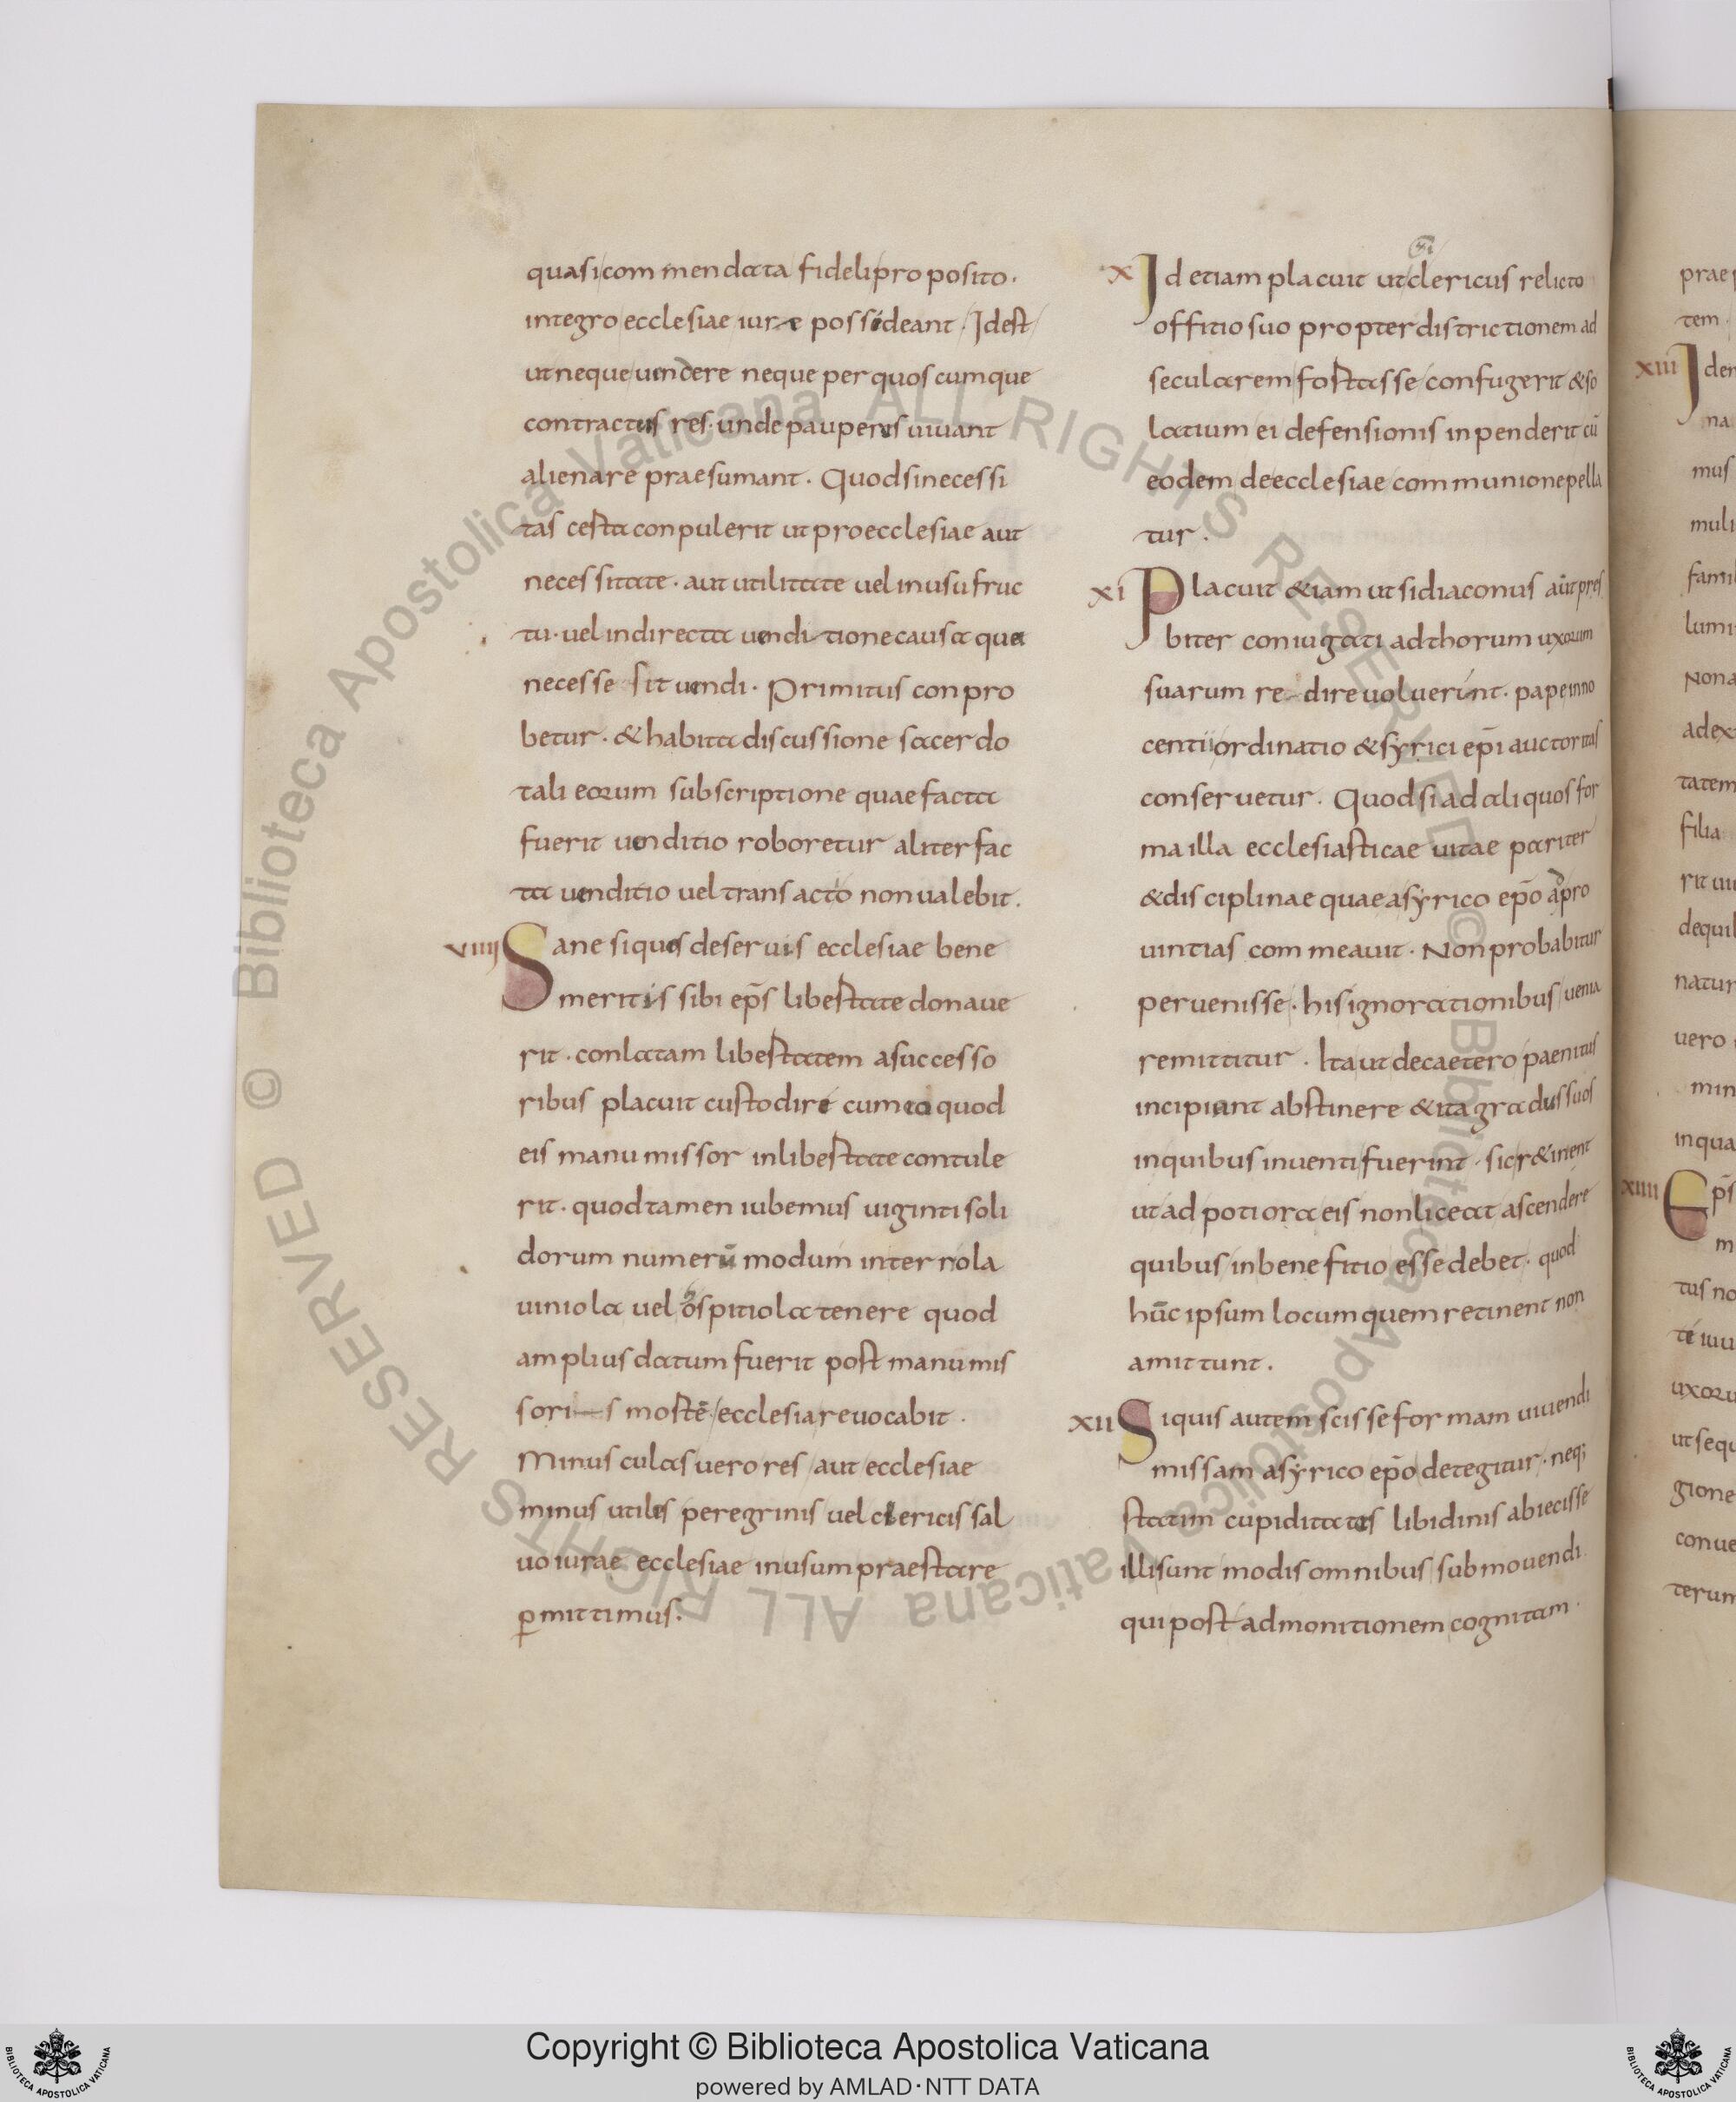 quasi commendata fideli proposito.
integro ecclesiae iure possideant. Idest
ut neque vendere neque per quoscumque
contractus res. unde pauperes uiuant
alienare praesumant. Quod si necessi
tas cesta conpulerit ut pro ecclesiae aut
necessitate. aut utilitate uel in usu fruc
tu. uel in directa uenditione causa quae
necesse sit uendi. Primitus conpro
betur. & habita discussione sacerdo
tali eorum subscriptione quae facta
fuerit uenditio roboretur aliter fac
ta uenditio uel transacto non ualebit.
VIIII Sane si quos de seruis ecclesiae bene
meritis sibi ep̄s libertate donaue
rit. conlatam libertatem a successo
ribus placuit custodire cum eo quod
eis manumissor in libertate contule
rit. quod tamen iubemus uiginti soli
dorum numerū modum in terrola
uiniola uel hospitiola tenere quod
amplius datum fuerit post manumis
soris mortē. ecclesia reuocabit.
Minusculas uero res aut ecclesiae
minus utiles peregrinis uel clericis sal
uo iurae ecclesiae in usum praestare
p̲mittimus.
X Id etiam placuit ut clericus relicto
offitio suo propter districtionem ad
secularem fortasse confugerit & so
latium ei defensionis inpenderit cū
eodem de ecclesiae communione pella
tur.
XI Placuit &iam ut si diaconus aut pres
biter coniugati ad thorum uxorum
suarum redire uoluerint. pape inno
centii ordinatio & syrici ep̄i auctoritas
conseruetur. Quod si ad aliquos for
ma illa ecclesiasticae uitae pariter
& disciplinae quae a syrico ep̄o ad pro
uintias commeauit. Non probabitur
peruenisse. his ignorationibus uenia
remittitur. Ita ut de caetero paenitus
incipiant abstinere & ita gradus suos
in quibus inuenti fuerint. sic r&inent
ut ad potiora eis non liceat ascendere
quibus in benefitio esse debet. quod
hūc ipsum locum quem retinent non
amittunt.
XII Si quis autem scisse formam uiuendi
missam a syrico ep̄o detegitur. neq;
statim cupiditates libidinis abiecisse
illi sunt modis omnibus submouendi
qui post admonitionem cognitam.
XIII
XIIII
Copyright © Biblioteca Apostolica Vaticana
powered by AMLAD·NTT DATA
© Biblioteca Apostolica Vaticana ALL RIGHTS RESERVED
© Biblioteca Apostolica Vaticana ALL RIGHTS RESERVED
BIBLIOTECA APOSTOLICA VATICANA
BIBLIOTECA APOSTOLICA VATICANA